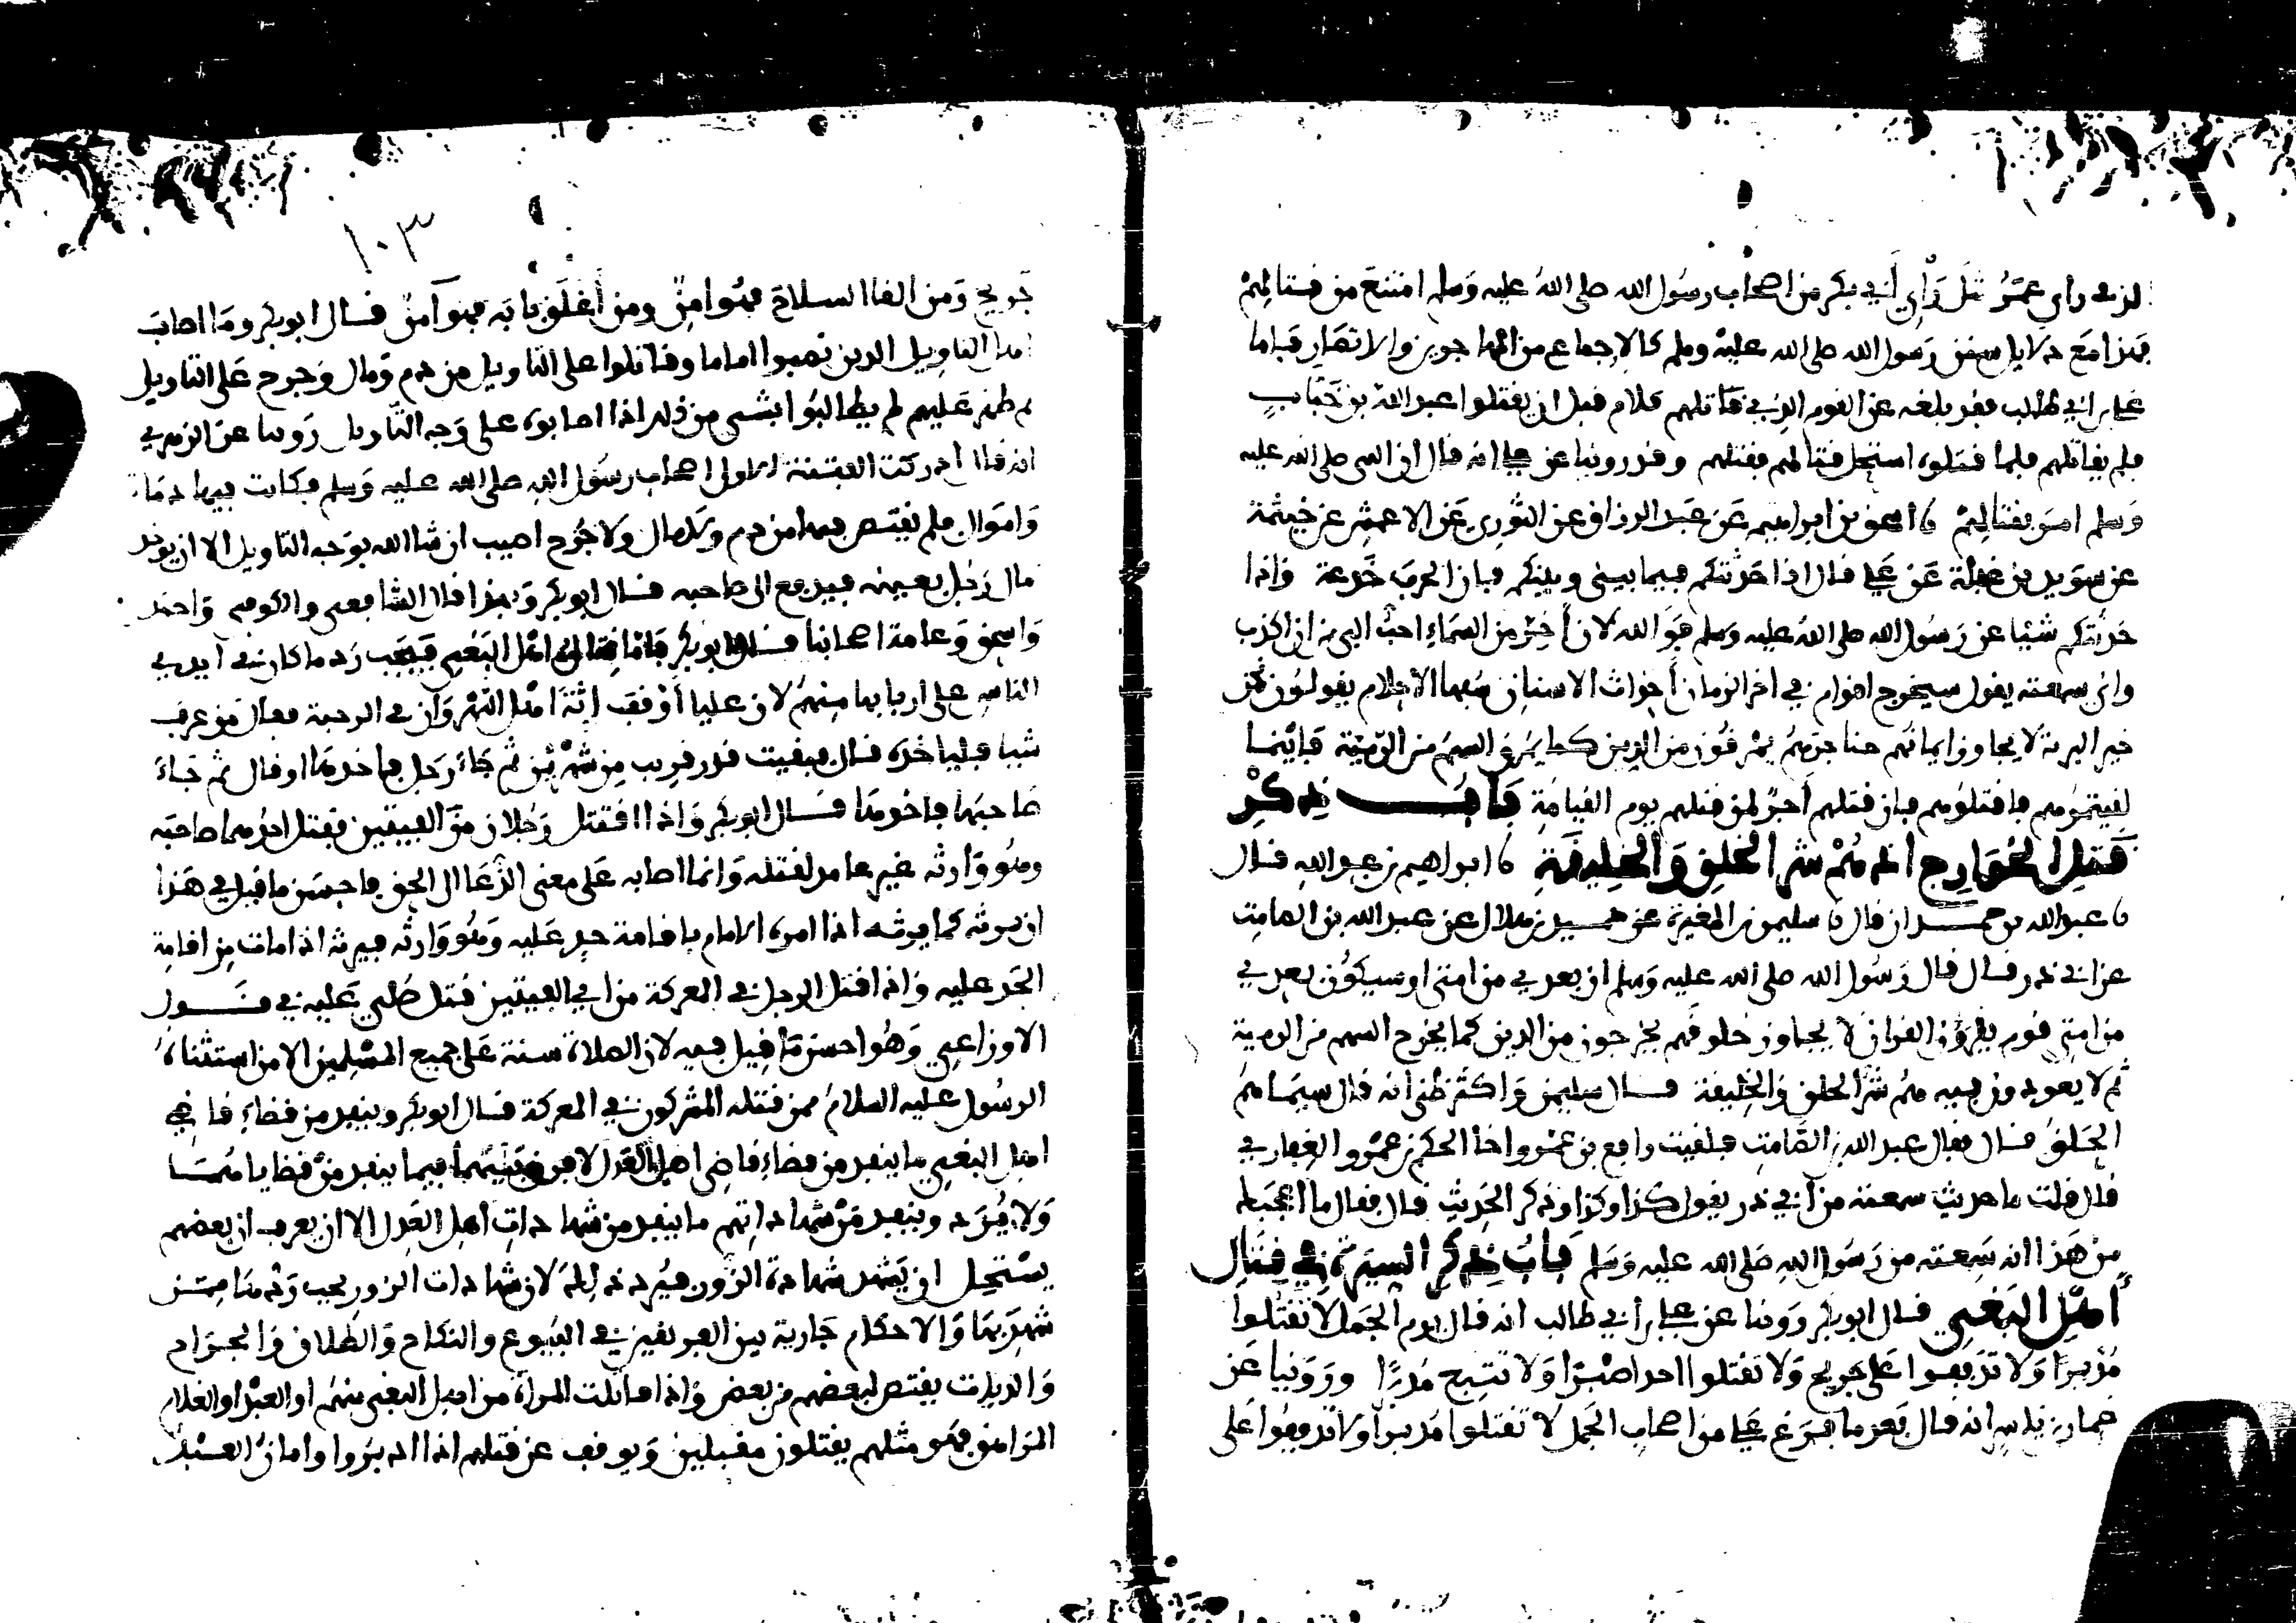 لذي رأى عمر مثل رأي أبي بكر من اصحاب رسول الله صلى الله عليه وسلم امتنع من قتالهم
فهذا مع دلايل سنن رسول الله صلى الله عليه وسلم كالاجماع من المهاجرين والانصار فاما
علي بن ابي طالب فقد بلغه عن القوم الذي قاتلهم كلام قبل ان يقتلوا عبد الله بن خباب
فلم يقاتلهم فلما قتلوه استحل قتالهم فقتلهم وقد روينا عن علي انه قال ان النبي صلى الله عليه
وسلم امر بقتالهم نا اسحق بن ابراهيم عن عبد الرزاق عن الثوري عن الاعمش عن خيثمة
عن سويد بن غفلة عن علي قال اذا حدثتكم فيما بيني وبينكم فان الحرب خدعة واذا
حدثتكم شيا عن رسول الله صلى الله عليه وسلم فوالله لان أخر من السماء احب الي من ان اكذب
واني سمعته يقول سيخرج اقوام في اخر الزمان أحداث الاسنان سفها الاحلام يقولون من
خير البرية لا يجاوز ايمانهم حناجرهم يمرقون من الدين كما يمرق السهم من الرمية فاينما
لقيتموهم فاقتلوهم فان قتلهم أجر لمن قتلهم يوم القيامة باب ذكر
قتل الخوارج انهم شر الخلق والخليقة نا ابراهيم بن عبد الله قال
نا عبد الله بن حمدان قال نا سليمن بن المغيرة عن حميد بن هلال عن عبد الله بن الصامت
عن ابي ذر قال قال رسول الله صلى الله عليه وسلم ان بعدي من امتي او سيكون بعدي
من امتي قوم يقرؤن القران لا يجاوز حلوقهم يخرجون من الدين كما يخرج السهم من الرمية
ثم لا يعودون فيه هم شر الخلق والخليقة قال سليمن واكثر ظني انه قال سيماهم
الحلق قال فقال عبد الله بن الصامت فلقيت رافع بن عمرو اخا الحكم بن عمرو الغفاري
قال قلت ما حديث سمعته من أبي ذر يقول كذا وكذا وذكر الحديث قال فقال ما اعجبك
من هذا انا سمعته من رسول الله صلى الله عليه وسلم باب ذكر السيرة في قتال
أهل البغي قال ابو بكر روينا عن علي بن أبي طالب انه قال يوم الجمل لا تقتلوا
مدبرا ولا تدففوا على جريح ولا تقتلوا احدا صبرا ولا تتبع مدبرا وروينا عن
انه قال بعد ما فرغ علي من اصحاب الجمل لا تقتلوا مدبرا ولا تدففوا على
جريح ومن القا السلاح فهو امن ومن أغلق بابه فهو آمن قال ابو بكر وما اصاب
اهل التاويل الذين نصبوا اماما وقاتلوا على التاويل من دم ومال وجرح على التاويل
ثم ظهر عليهم لم يطالبوا بشي من ذلك اذا اصابوه على وجه التاويل روينا عن الزهري
انه قال أدركت الفتنة الاولى اصحاب رسول الله صلى الله عليه وسلم فكانت فيها دما
واموال فلم يقتص فيها من دم ولا مال ولا جرح اصيب ان شا الله بوجه التاويل الا ان يوخذ
مال رجل بعينه فيدفع الى صاحبه قال ابو بكر وبهذا قال الشافعي والكوفي واحمد
واسحق وعامة اصحابنا قال ابو بكر فاذا أهل البغي فيجب رد ما كان في أيدي
الناس على اربابها منهم لان عليا أوقف رثة اهل النهروان في الرحبة فقال من عرف
شيا فلياخذه قال فبقيت قدر قريب من شهرين ثم جاء رجل فاخذها او قال ثم جاء
صاحبها فاخذها قال ابو بكر واذا اقتتل رجلان من الفيتين فقتل احدهما صاحبه
وهو وارثه غير عامد لقتله وانما اصابه على معنى الدعا الى الحق فاحسن ما قيل في هذا
ان يرثه كما يرثه اذا امره الامام باقامة حد عليه وهو وارثه فيرثه اذا مات من اقامة
الحد عليه واذا قتل الرجل في المعركة من اي الفيتين قتل صلي عليه في قول
الاوزاعي وهو احسن ما قيل فيه لان الصلاة سنة على جميع المسلمين الا من استثناه
الرسول عليه السلام ممن قتله المشركون في المعركة قال ابو بكر وينفد من قضاء قاضي
اهل البغي ما ينفد من قضاء قاضي اهل العدل لا فرق بينهما فيما ينفد من قضاياهما
ولا يرد وينفد من شهاداتهم ما ينفد من شهادات أهل العدل الا ان يعرف ان بعضهم
يستحل ان يشهد شهادة الزور فيرد ذلك لان شهادات الزور يجب ردها ممن
شهد بها والاحكام جارية بين الفريقين في البيوع والنكاح والطلاق والجراح
والديات يقتص لبعضهم من بعض واذا قاتلت المراة من اهل البغي منهم او العبد او الغلام
المراهق فهو مثلهم يقتلون مقبلين ويوقف عن قتلهم اذا ادبروا وامان العبد
١٠٣